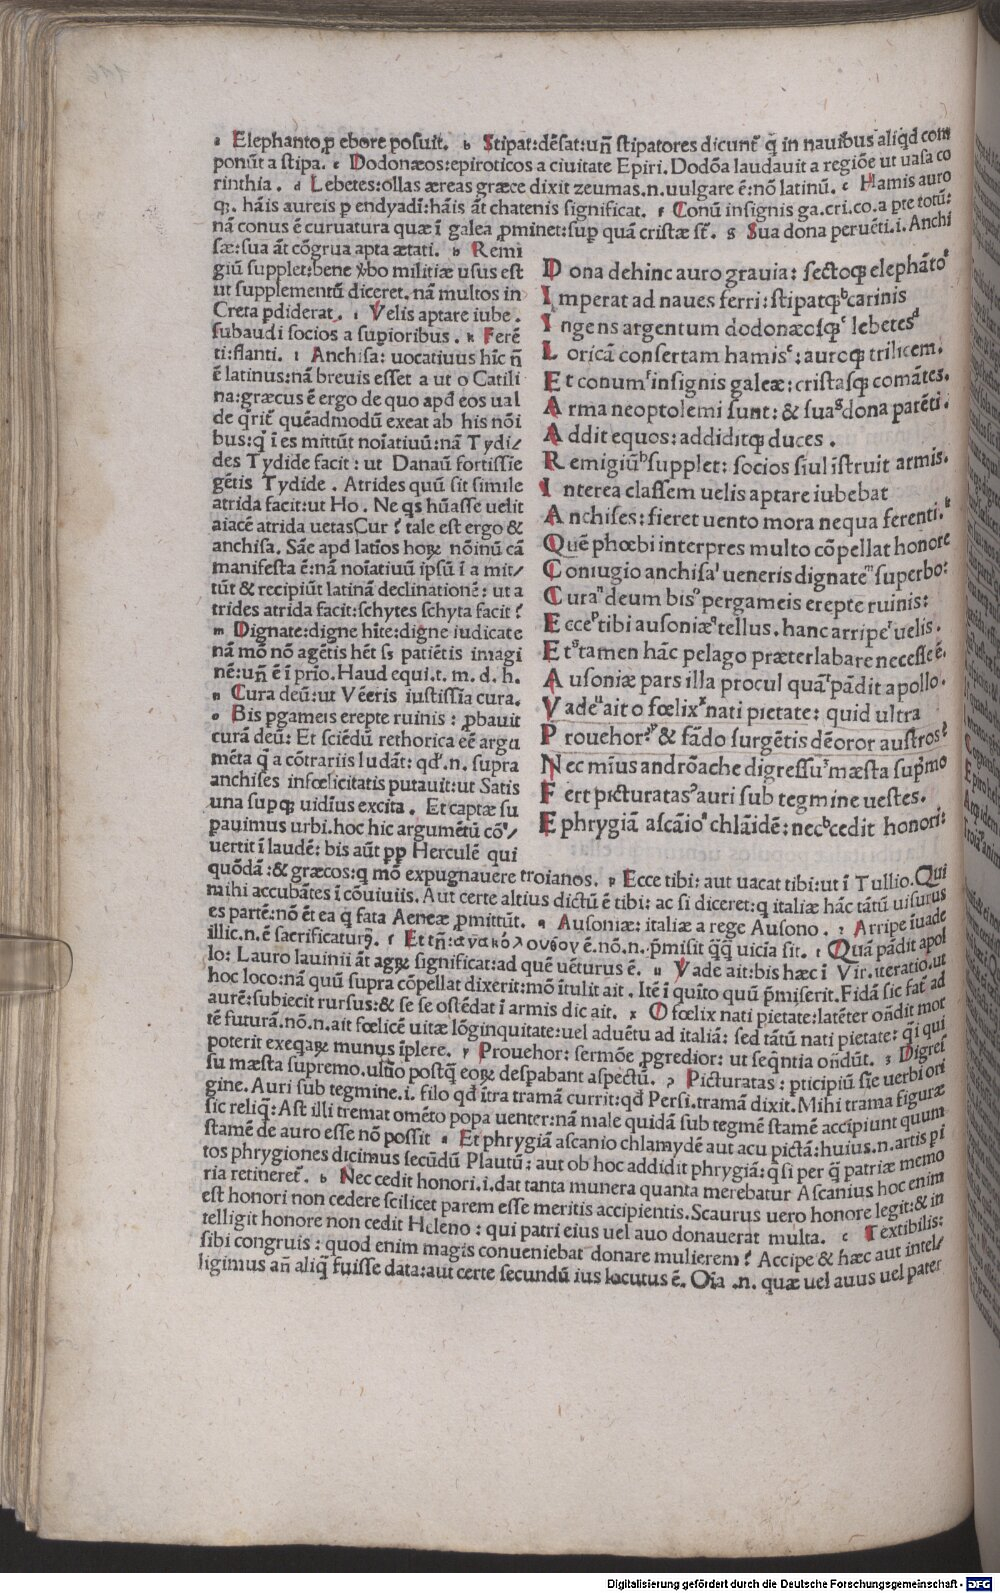 a Elephanto ꝓ ebore posuit. b Stipat: dēsat: uñ stipatores dicunt̄ q̄ in nauibus aliq̄d com
ponūt a stipa. c Dodonæos: epiroticos a ciuitate Epiri. Dodōa laudauit a regiōe ut uasa co
rinthia. d Lebetes: ollas æreas græce dixit zeumas .n. uulgare ē: nō latinū. e Hamis auro
qꝫ. hāis aureis p endyadī: hāis āt chatenis significat. f Conū insignis ga.cri.co.a pte totū:
nā conus ē curuatura quæ ī galea ꝓminet: suꝑ quā cristæ sr̄. g Sua dona peruēti.i. Anchi
sæ: sua āt cōgrua apta ætati. h Remi
giū supplet: bene ꝟbo militiæ usus est
ut supplementū diceret. nā multos in
Creta pdiderat. i Velis aptare iube.
subaudi socios a supioribus. k Ferē
ti: flanti. l Anchisa: uocatiuus hīc ñ
ē latinus: nā breuis esset a ut o Catili
na: græcus ē ergo de quo apd eos ual
de q̄rit̄ quēadmodū exeat ab his nōi
bus: q̄ ī es mittūt noīatiuū: nā Tydi/
des Tydide facit: ut Danaū fortissie
gētis Tydide. Atrides quū sit simile
atrida facit: ut Ho. Ne qs hūasse uelit
aiacē atrida uetas Cur? tale est ergo &
anchisa. Sāe apd latīos hoꝝ nōinū cā
manifesta ē: nā noīatiuū ipsū ī a mit/
tūt & recipiūt latinā declinationē: ut a
trides atrida facit: schytes schyta facit?
m Dignate: digne hīte: digne iudicate
nā mō nō agētis hēt ss patiētis imagi
nē: uñ ē ī prīo. Haud equi.t.m.d.h.
n Cura deū: ut Vēeris iustissia cura.
o Bis pgameis erepte ruinis: ꝓbauit
curā deū: Et sciēdū rethorica eē argu
mēta q̄ a cōtrariis ludāt: qđ .n. supra
anchises infœlicitatis putauit: ut Satis
una supqꝫ uidīus excita. Et captæ su
pauimus urbi. hoc hic argumētū cō/
uertit ī laudē: bis aūt pp Herculē qui
D ona dehinc auro grauia: sectoqꝫ elephāto a
I mperat ad naues ferri: stipatqꝫ b carinis
I ngens argentum dodonæosqꝫ c lebetes d
L oricā consertam hamis e: auroqꝫ trilicem.
E t conum f insignis galeæ: cristasqꝫ comātes.
A rma neoptolemi sunt: & sua g dona parēti.
A ddit equos: addiditqꝫ duces.
R emigiū h supplet: socios siul īstruit armis.
I nterea classem uelis aptare iubebat i
A nchises: fieret uento mora nequa ferenti. k
Q uē phœbi interpres multo cōpellat honore
C oniugio anchisa l ueneris dignate m superbo:
C ura n deum bis o pergameis erepte ruinis:
E cce p tibi ausoniæ q tellus. hanc arripe r uelis.
E t s tamen hāc pelago præterlabare necesse ē.
A usoniæ pars illa procul quā t pādit apollo.
V ade u ait o fœlix x nati pietate: quid ultra
P rouehor? y & fādo surgētis dēoror austros?
N ec mīus andrōache digressu z mæsta sup̄mo
F ert picturatas ɂ auri sub tegmine uestes.
E phrygiā ascāio a chlāidē: nec b cedit honori:
quōdā: & græcos: q mō expugnauere troianos. p Ecce tibi: aut uacat tibi: ut ī Tullio. Qui
mihi accubātes ī cōuiuiis. Aut certe altius dictū ē tibi: ac si diceret: q italiæ hāc tātū uisurus
es partē: nō ēt ea q̄ fata Aeneæ ꝓmittūt. q Ausoniæ: italiæ a rege Ausono. r Arripe īuade
illic .n. ē sacrificaturꝰ. s Et tñ: ανακόλουθον ē. nō .n. p̄misit q̄q̄ uicia sit. t Quā pādit apol
lo: Lauro lauinii āt agꝝ significat: ad quē uēturus ē. u Vade ait: bis hæc ī Vir. iteratio. ut
hoc loco: nā quū supra cōpellat dixerit: mō ītulit ait. Itē ī quīto quū p̄miserit. Fidā sic fat̄ ad
aurē: subiecit rursus: & se se ostēdat ī armis dic ait. x O fœlix nati pietate: latēter oñdit mor
tē futurā. nō .n. ait fœlicē uitæ lōginquitate: uel aduētu ad italiā: sed tātū nati pietate: q̄ i qui
poterit exeqaꝝ munus īplere. y Prouehor: sermōe ꝓgredior: ut seq̄ntia oñdūt. z Digres
su mæsta supremo. ultīo postq̄ eoꝝ despabant aspectū. ɂ Picturatas: pticipiū sīe uerbi ori
gine. Auri sub tegmine .i. filo qđ ītra tramā currit: qđ Persi. tramā dixit. Mihi trama figuræ
sic reliq̄: Ast illi tremat omēto popa uenter: nā male quidā sub tegmē stamē accipiunt quum
stamē de auro esse nō possit a Et phrygiā ascanio chlamydē aut acu pictā: huius .n. artis pi
tos phrygiones dicimus secūdū Plautū; aut ob hoc addidit phrygiā: q si per q̄ patriæ memo
ria retineret̄. b Nec cedit honori .i. dat tanta munera quanta merebatur Ascanius hoc enim
est honori non cedere scilicet parem esse meritis accipientis. Scaurus uero honore legit: & in
telligit honore non cedit Heleno: qui patri eius uel auo donauerat multa. c Textibilis:
sibi congruis: quod enim magis conueniebat donare mulierem? Accipe & hæc aut intel/
ligimus añ aliq̄ fuisse data: aut certe secundū ius locutus ē. Oīa .n. quæ uel auus uel pater
Digitalisierung gefördert durch die Deutsche Forschungsgemeinschaft - DFG